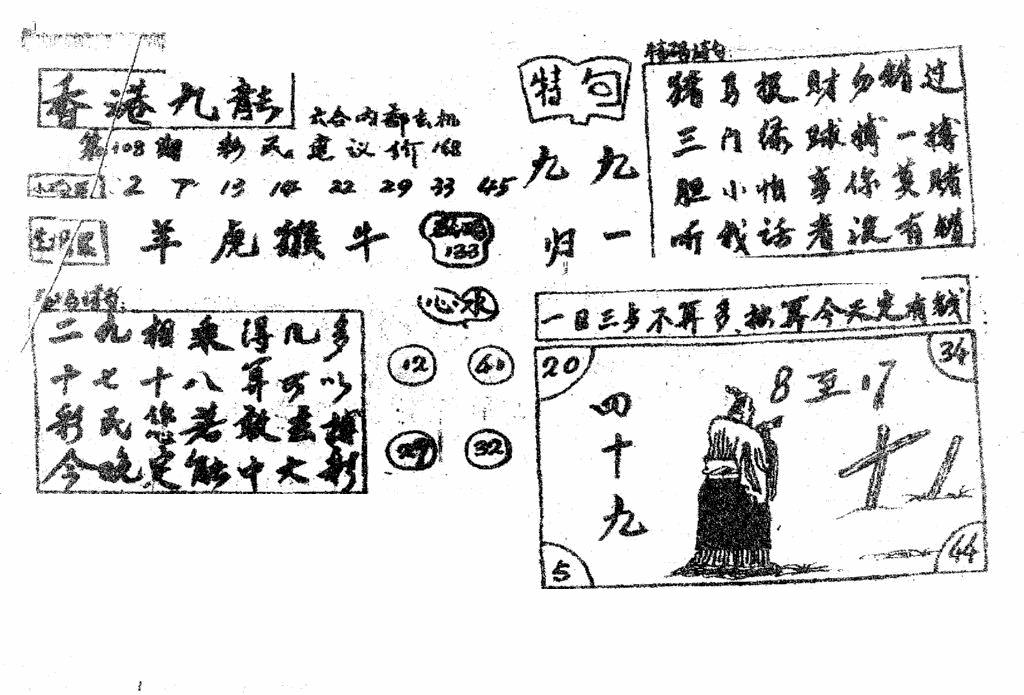 香港九龍
六合内部玄机
第108期 彩民 建议价168
2 7 13 14 22 29 33 45
羊 虎 猴 牛
133
二九相乘得几多
十七十八算可以
彩民您若敢去搏
今晚定能中大彩
心水
12 41
29 32
特句
九九
归一
特码诗句
猪马报财勿错过
三门绿球搏一搏
胆小怕事你莫赌
听我话者没有错
一日三步不算多 按算今天定有钱
20
34
四十九
8 至 17
5
44